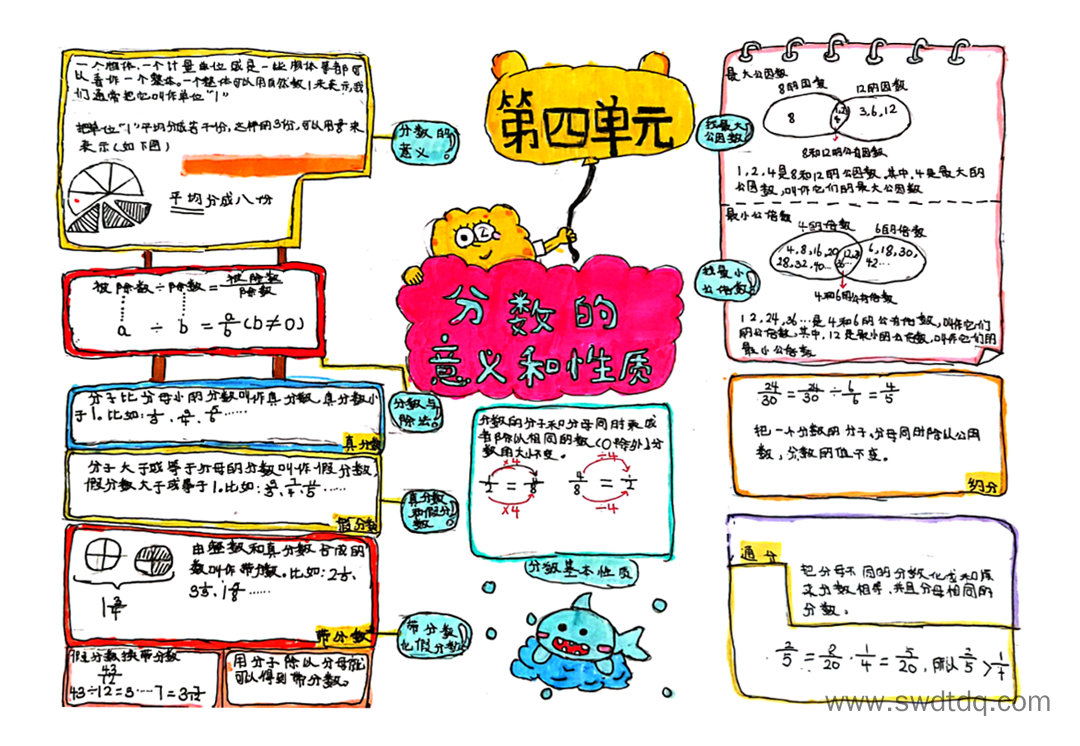 第四单元
分数的
意义和性质
一个物体、一个计量单位或是一些物体等都可
以看作一个整体。一个整体可以用自然数1来表示,我
们通常把它叫作单位"1"
把单位"1"平均分成若干份,这样的3份,可以用
表示(如下图)
平均分成八份
分数的
意义。
被除数÷除数=被除数/除数
a ÷ b = a/b (b≠0)
分数与
除法。
分子比分母小的分数叫作真分数,真分数小
于1。比如:
真分数
分子大于或等于分母的分数叫作假分数,
假分数大于或等于1。比如:
假分数
真分数
和假分
数。
由整数和真分数合成的
数叫作带分数。比如:
带分数
带分数
化假分数。
假分数换带分数
43/12
43÷12=3……7=3 7/12
用分子除以分母就
可以得到带分数。
分数的分子和分母同时乘或
者除以相同的数(0除外)分
数的大小不变。
×4 ÷4
1/2 = 4/8 4/8 = 1/2
×4 ÷4
分数基本性质
找最大
公因数。
最大公因数
8的因数 12的因数
8 1,2,4 3,6,12
8和12的公有因数
1,2,4是8和12的公因数,其中,4是最大的
公因数,叫作它们的最大公因数
找最小
公倍数。
最小公倍数
4的倍数 6的倍数
4,8,16,20, 6,18,30,
28,32,40… 42…
4和6的公有倍数
12,24,36…是4和6的公有倍数,叫作它们
的公倍数,其中,12是最小的公倍数,叫作它们的
最小公倍数
24/30 = 24/30 ÷ 6/6 = 4/5
把一个分数的分子、分母同时除以公因
数,分数的值不变。
约分
通分
把分母不同的分数化成和原
来分数相等,并且分母相同的
分数。
2/5 = 8/20 , 1/4 = 5/20 , 所以 2/5 > 1/4
www.swdtdq.com